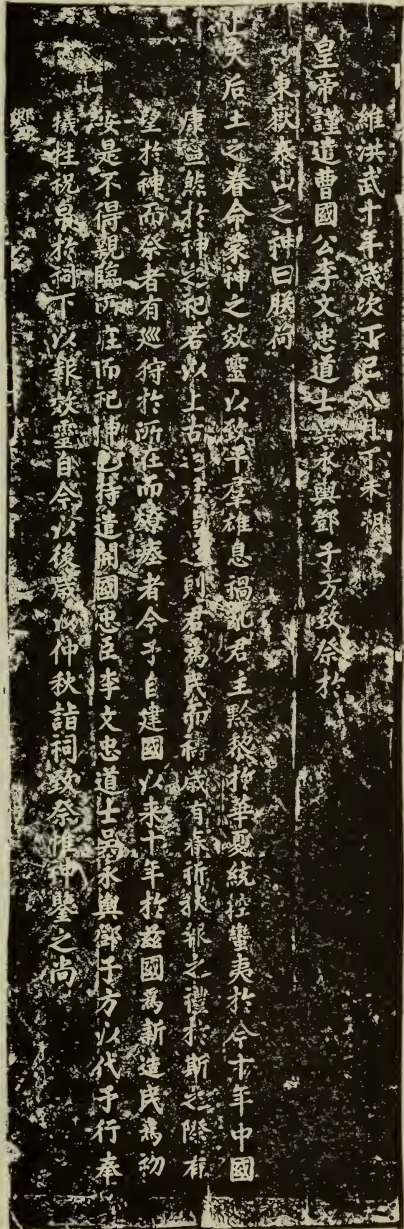 維洪武十年歲次丁巳八月丁未朔
皇帝謹遣曹國公李文忠道士吳永與鄧子方致祭於
東嶽泰山之神曰朕荷
上天后土之眷命蒙神之效靈以致平羣雄息禍亂君主黔黎於華夏統控蠻夷於今十年中國
康寧然於神之祀若以上古之則君為民而禱歲有春祈秋報之禮於斯之際有
望於神而祭者有巡狩於所在而燎瘞者今予自建國以來十年於茲國為新造民為初
安是不得親臨所在而祀神也特遣開國忠臣李文忠道士吳永與鄧子方以代予行奉
犧牲祝帛於祠下以報效靈自今以後歲以仲秋詣祠致祭惟神鑒之尚
饗